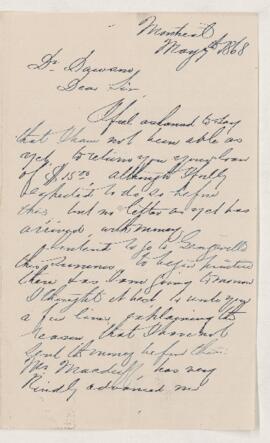 Montreal
May 7th 1868
Dr Dawson,
Dear Sir
I feel ashamed to say
that I have not been able as
yet, to return you your loan
of $15.00 although I fully
expected to do so before
this, but no letter as yet has
arrived with money
I intend to go to
this summer to begin
there was I am going tomorrow
I thought it best to write you
a few lines explaining the
reason that I have not
sent the money before this.
Mr has very
Kindly advanced me